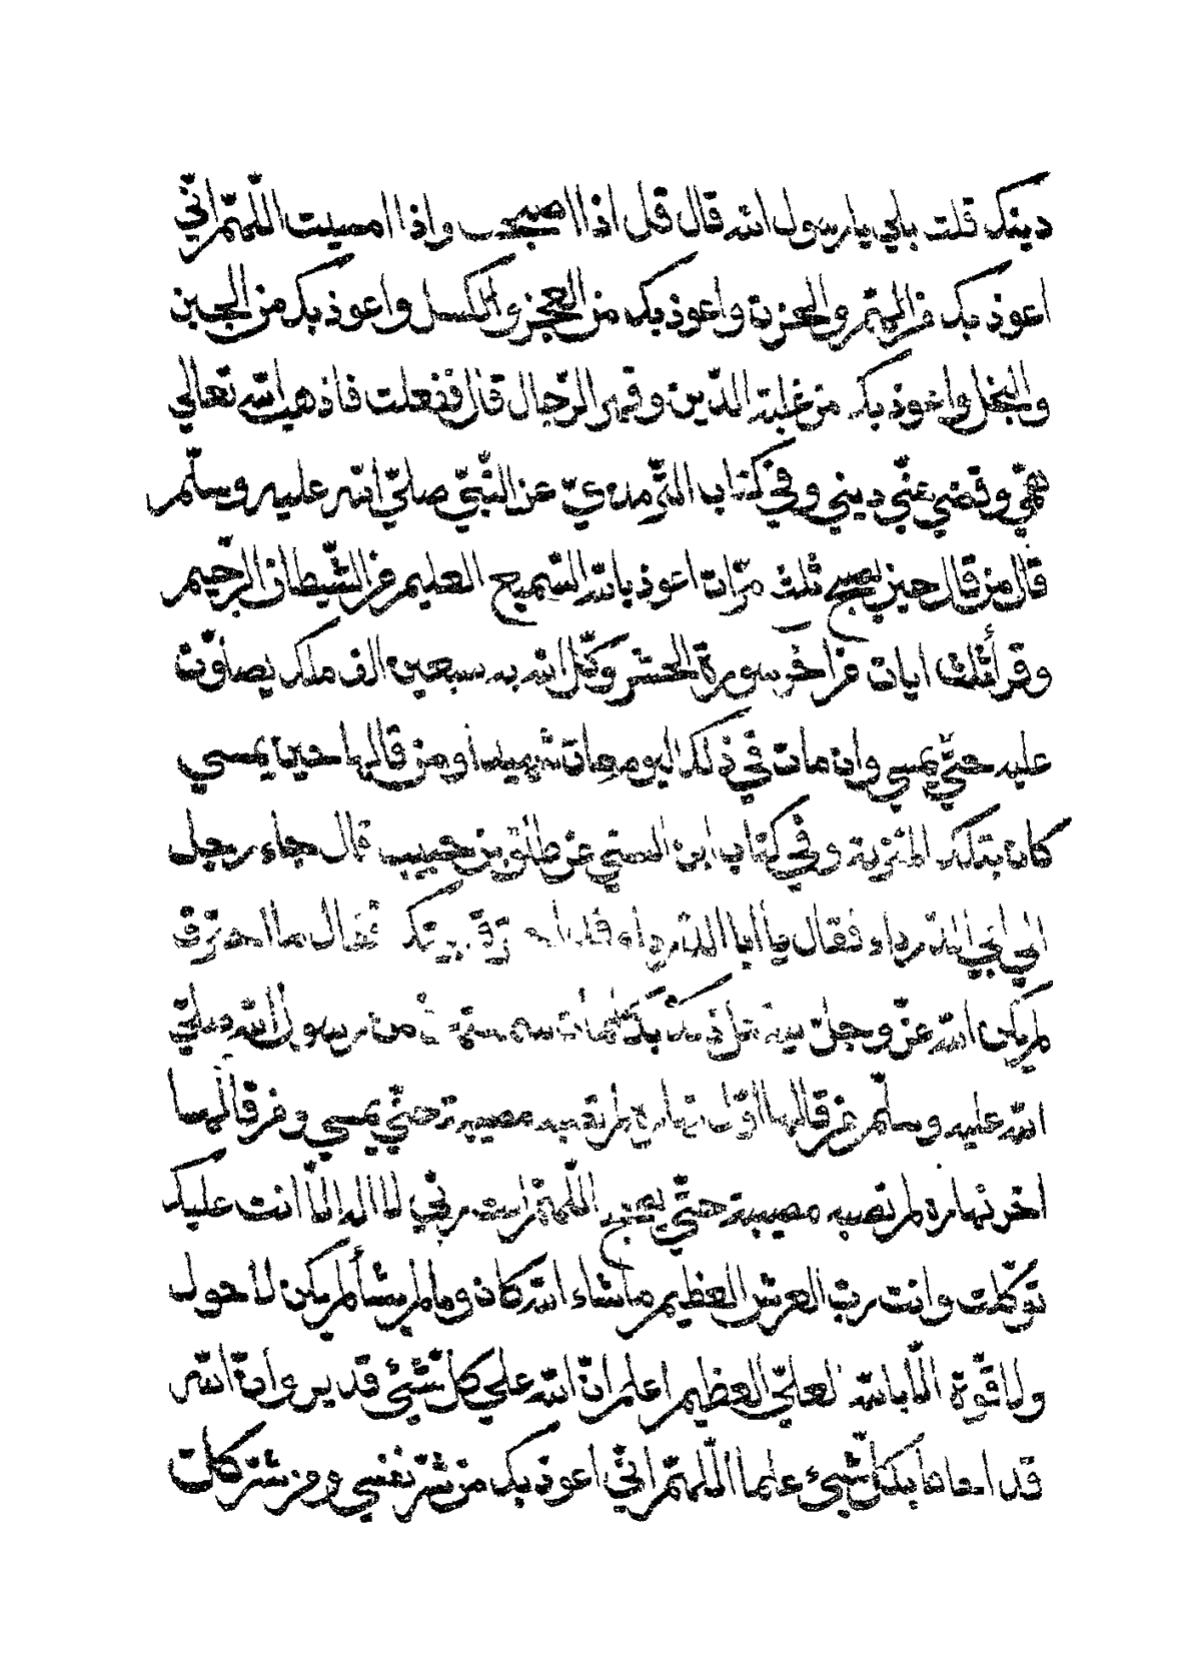 دينك قلت بلي يا رسول الله قال قل اذا اصبحت واذا امسيت اللّهمّ انّي
اعوذ بك من الهمّ والحزن واعوذ بك من العجز والكسل واعوذ بك من الجبن
والبخل واعوذ بك من غلبة الدّين وقهر الرّجال قال ففعلت فاذهب الله تعالي
همّي وقضي عنّي ديني وفي كتاب التّرمذيّ عن النّبيّ صلّي الله عليه وسلّم
قال من قال حين يصبح ثلث مرّات اعوذ بالله السّميع العليم من الشّيطان الرّجيم
وقرأ ثلث ايات من اخر سورة الحشر وكّل الله به سبعين الف ملك يصلّون
عليه حتّي يمسي وان مات في ذلك اليوم مات شهيدا ومن قالها حين يمسي
كان بتلك المنزلة وفي كتاب ابن السنّي عن طلق بن حبيب قال جاء رجل
الي ابي الدّرداء فقال يا أبا الدّرداء قد احترق بيتك فقال ما احترق
لم يكن الله عزّ وجلّ ليفعل ذلك بكلمات سمعتهنّ من رسول الله صلّي
الله عليه وسلّم من قالها اوّل نهاره لم تصبه مصيبة حتّي يمسي ومن قالها
اخر نهاره لم تصبه مصيبة حتّي يصبح اللّهمّ انت ربّي لا اله الّا انت عليك
توكّلت وانت ربّ العرش العظيم ما شاء الله كان وما لم يشأ لم يكن لا حول
ولا قوّة الّا بالله العليّ العظيم اعلم انّ الله علي كلّ شيئ قدير وانّ الله
قد احاط بكلّ شيئ علما اللّهمّ انّي اعوذ بك من شرّ نفسي ومن شرّ كلّ